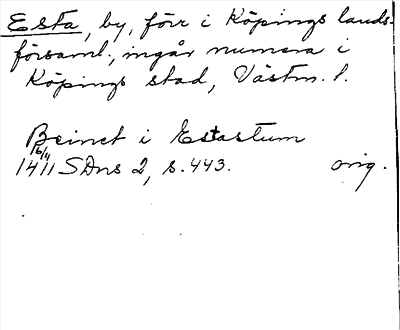 Esta, by, förr i Köpings lands-
församl., ingår numera i
Köpings stad, Västm. l.
Beinct i Estastum
16/4
1411 SDns 2, s. 443. orig.